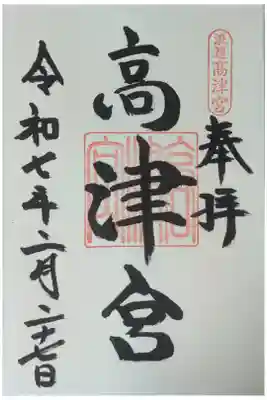 浪速高津宮
奉拝
高津宮
令和七年二月二十七日